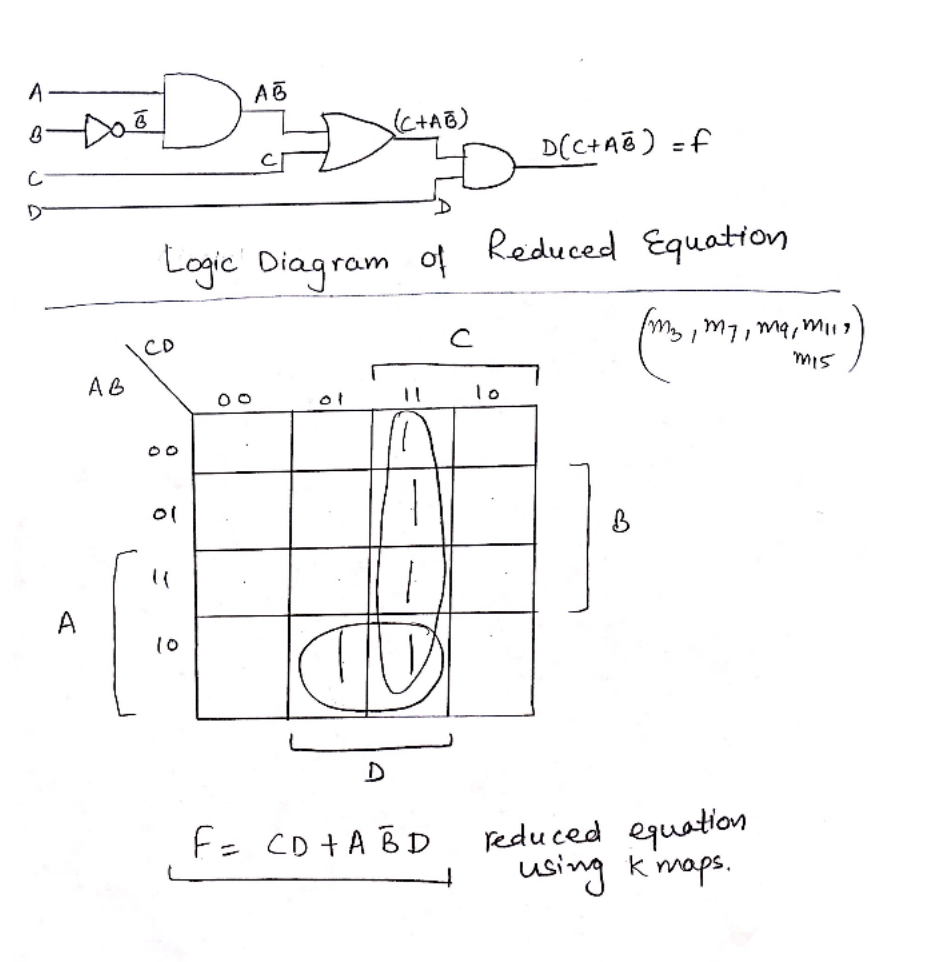 A
B
B̅
AB̅
C
C
(C+AB̅)
D
D
D(C+AB̅) = f
Logic Diagram of Reduced Equation
(m3, m7, m9, m11,
m15)
CD
AB
C
00 01 11 10
00 1
01 1
11 1
10 1 1
A
B
D
F = CD + A B̅ D reduced equation
using k maps.